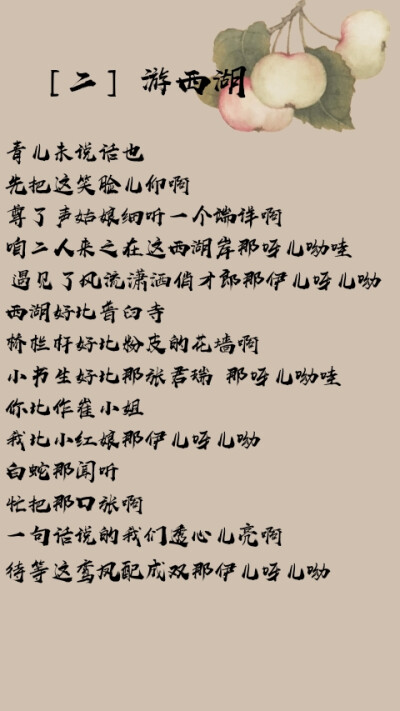 ［二］ 游西湖
青儿未说话也
先把这笑脸儿仰啊
尊了声姑娘细听一个端详啊
咱二人来之在这西湖岸那呀儿呦哇
遇见了风流潇洒俏才郎那伊儿呀儿呦
西湖好比普臼寺
桥栏杆好比粉皮的花墙啊
小书生好比那张君瑞 那呀儿呦哇
你比作崔小姐
我比小红娘那伊儿呀儿呦
白蛇那闻听
忙把那口张啊
一句话说的我们透心儿亮啊
待等这鸾凤配成双那伊儿呀儿呦